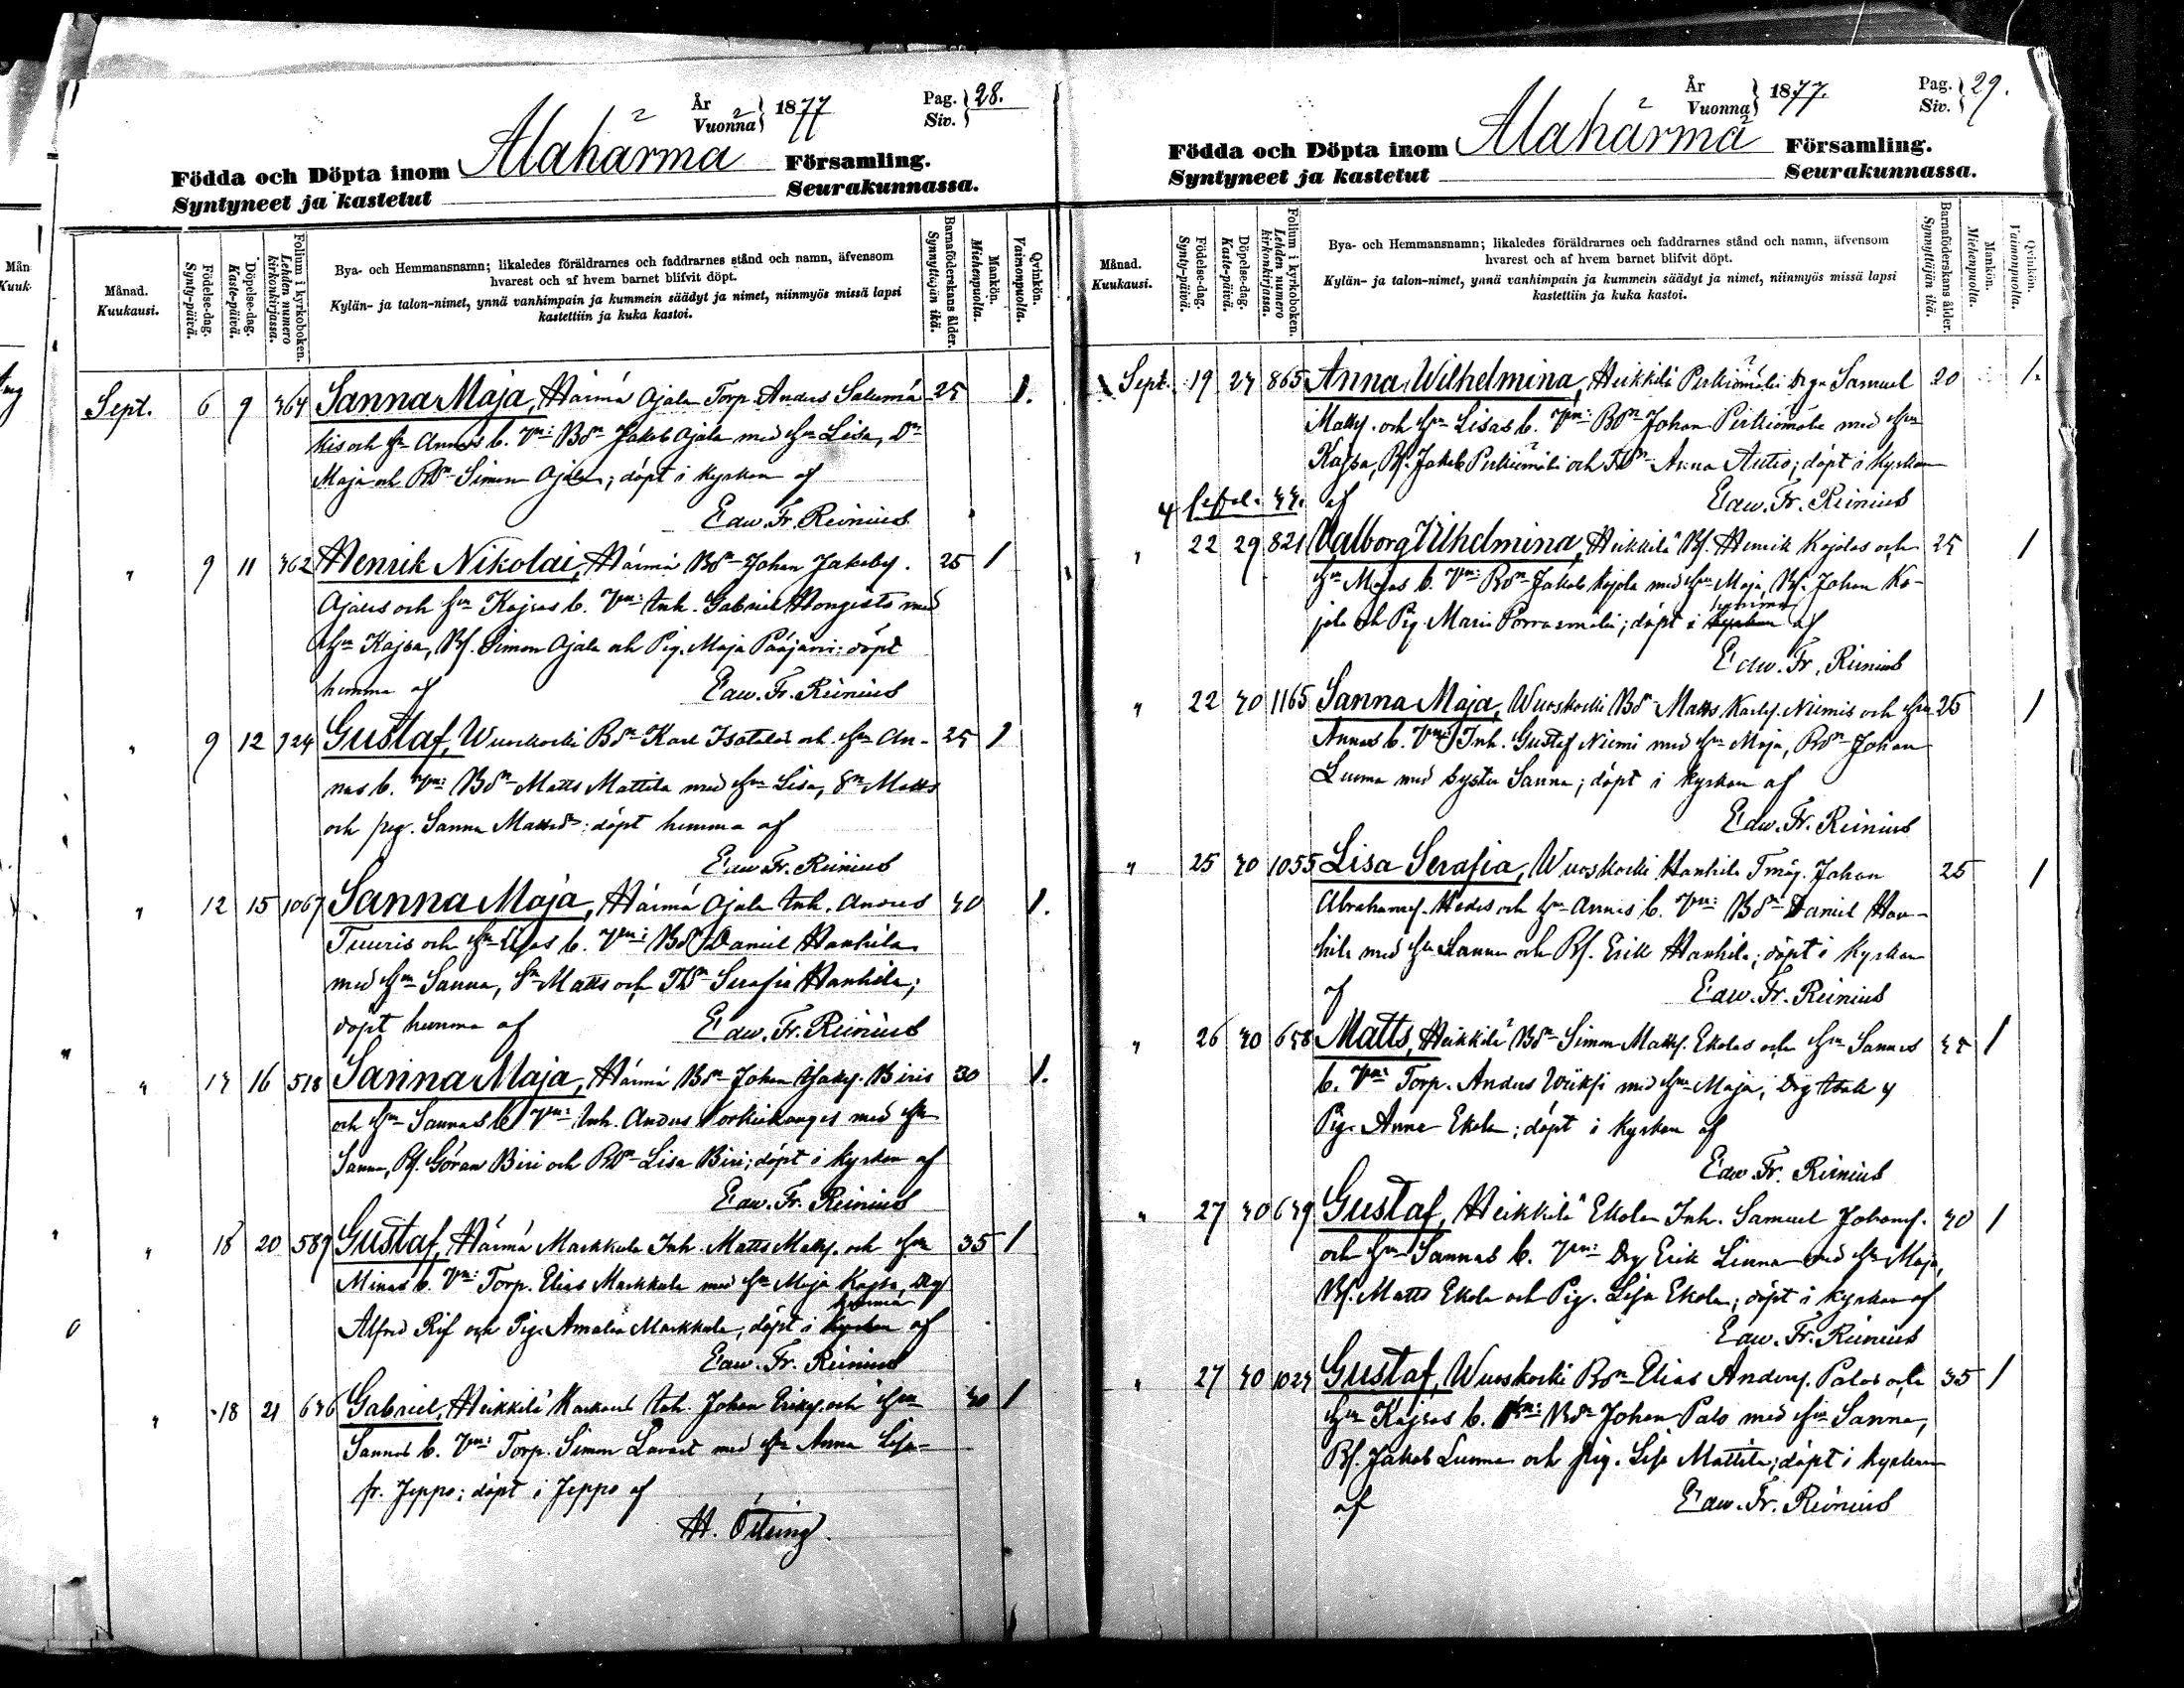 År
Vuonna
1877
Pag.
Siv.
28.
Födda och Döpta inom Alahärmä Församling.
Syntyneet ja kastetut Seurakunnassa.
Månad.
Kuukausi.
Födelse-dag.
Synty-päivä.
Döpelse-dag.
Kaste-päivä.
Folium i kyrkoboken.
Lehden numero
kirkonkirjassa.
Bya- och Hemmansnamn; likaledes föräldrarnes och faddrarnes stånd och namn, äfvensom
hvarest och af hvem barnet blifvit döpt.
Kylän- ja talon-nimet, ynnä vanhimpain ja kummein säädyt ja nimet, niinmyös missä lapsi
kastettiin ja kuka kastoi.
Barnaföderskans ålder.
Synnyttäjän ikä.
Mankön.
Miehenpuolta.
Qvinkön.
Vaimonpuolta.
Sept. 6 9 364 Sanna Maja, Härmä Ajala Torp. Anders Salumä 25 1.
kis och Hu Annas b. Vn: Bdn Jakob Ajala med Hu Lisa, Dn
Maja och Bdn Simon Ajala; döpt i kyrkan af
Edw. Fr. Reinius
" 9 11 362 Henrik Nikolai, Härmä Bdn Johan Jakobs. 25 1
Ajalas och Hu Kajsas b. Vn: Inh. Gabriel Hongisto med
Hu Kajsa, Bs. Simon Ajala och Pig. Maja Pääjärvi: döpt
hemma af Edw. Fr. Reinius
" 9 12 724 Gustaf, Wuoskoski Bdn Karl Isotalos och Hu An- 25 1
nas b. Vn: Bdn Matts Mattila med Hu Lisa, Sn Matts
och pig. Sanna döpt hemma af
Edw. Fr. Reinius
" 12 15 1067 Sanna Maja, Härmä Ajala Inh. Anders 30 1.
Tuuris och Hu Lisas b. Vn: Bdn Daniel Hanhila
med Hu Sanna, Sn Matts och Serafia Hanhila;
döpt hemma af Edw. Fr. Reinius
" 13 16 518 Sanna Maja, Härmä Bdn Johan Jakobs. Biris 30 1.
och Hu Sannas b. Vn: Inh. Anders Korkiakangas med Hu
Sanna, Bs. Göran Biri och Lisa Biri; döpt i kyrkan af
Edw. Fr. Reinius
" 18 20 589 Gustaf, Härmä Markkula Inh. Matts Matts. och Hu 35 1
Minas b. Vn: Torp. Elias Markkula med Hu Maja Kajsa, Drg
hemma
Alfred Rif och Pig. Amalia Markkula, döpt i kyrkan af
Edw. Fr. Reinius
" 18 21 636 Gabriel, Heikkilä Inh. Johan Eriks. och Hu 30 1
Sannas b. Vn: Torp. Simon med Hu Anna Lisa
fr. Jeppo; döpt i Jeppo af
År
Vuonna
1877.
Pag.
Siv.
29.
Födda och Döpta inom Alahärmä Församling.
Syntyneet ja kastetut Seurakunnassa.
Månad.
Kuukausi.
Födelse-dag.
Synty-päivä.
Döpelse-dag.
Kaste-päivä.
Folium i kyrkoboken.
Lehden numero
kirkonkirjassa.
Bya- och Hemmansnamn; likaledes föräldrarnes och faddrarnes stånd och namn, äfvensom
hvarest och af hvem barnet blifvit döpt.
Kylän- ja talon-nimet, ynnä vanhimpain ja kummein säädyt ja nimet, niinmyös missä lapsi
kastettiin ja kuka kastoi.
Barnaföderskans ålder.
Synnyttäjän ikä.
Mankön.
Miehenpuolta.
Qvinkön.
Vaimonpuolta.
Sept. 19 23 865 Anna Wilhelmina, Heikkilä Perkiömäki Drg. Samuel 20 1.
Matts. och Hu Lisas b. Vn: Bdn Johan Perkiömäki med Hu
Kajsa, Bs. Jakob Perkiömäki och Anna Autio; döpt i kyrkan
af Edw. Fr. Reinius
" 22 29 821 Valborg Vilhelmina, Heikkilä Bs. Henrik Kojolas och 25 1
Hu Majas b. Vn: Bdn Jakob Kojola med Hu Maja, Bs. Johan Ko-
hemma
jola och Pig. Maria Porrasmäki; döpt i kyrkan af
Edw. Fr. Reinius
" 22 30 1165 Sanna Maja, Wuoskoski Bdn Matts Karls. Niemis och Hu 25 1
Annas b. Vn: Inh. Gustaf Niemi med Hu Maja, Bdn Johan
Luoma med syster Sanna; döpt i kyrkan af
Edw. Fr. Reinius
" 25 30 1055 Lisa Serafia, Wuoskoski Hanhila Tmåg. Johan 25 1
Abrahams. och Hu Annas b. Vn: Bdn Daniel Han-
hila med Hu Sanna och Bs. Erik Hanhila; döpt i kyrkan
af Edw. Fr. Reinius
" 26 30 658 Matts, Heikkilä Bdn Simon Matts. Ekolas och Hu Sannas 1
b. Vn: Torp. Anders Wiiksi med Hu Maja, Drg Isak y
Pig. Anna Ekola; döpt i kyrkan af
Edw. Fr. Reinius
" 27 30 639 Gustaf, Heikkilä Ekola Inh. Samuel Johans. 30 1
och Hu Sannas b. Vn: Drg Erik Linna med Hu Maja,
Bs. Matts Ekola och Pig. Lisa Ekola; döpt i kyrkan af
Edw. Fr. Reinius
" 27 30 1023 Gustaf, Wuoskoski Bdn Elias Anders. Palos och 35 1
Hu Kajsas b. Vn: Bdn Johan Palo med Hu Sanna,
Bs. Jakob Luoma och pig. Lisa Mattila; döpt i kyrkan
af Edw. Fr. Reinius